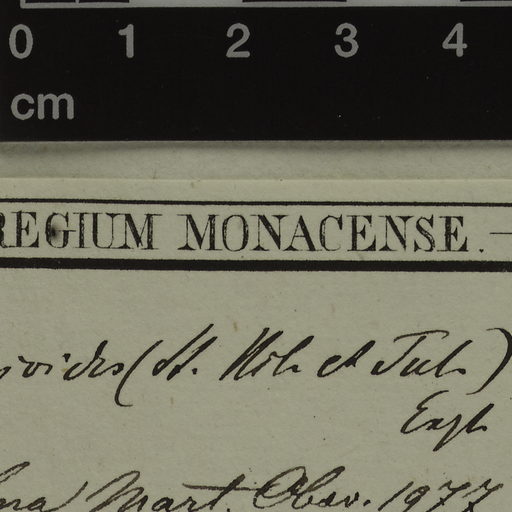 0 1 2 3 4
cm
REGIUM MONACENSE.
ioides (St. Hil et Tul.)
Engl
Mart. Obsv. 1977